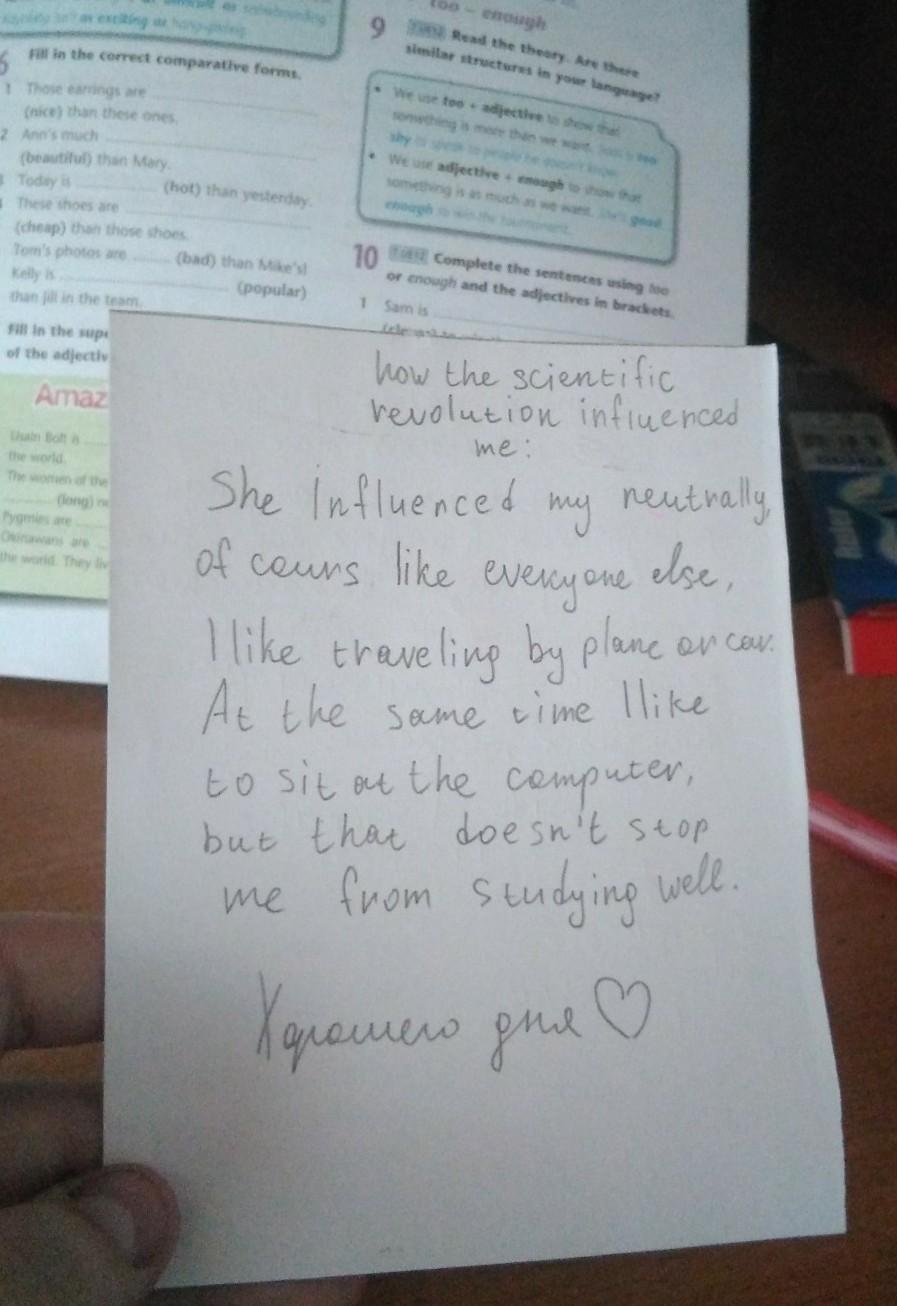 as exciting as hang-gliding.
Fill in the correct comparative forms.
1 Those earrings are
(nice) than these ones.
2 Ann's much
(beautiful) than Mary.
Today is (hot) than yesterday.
These shoes are
(cheap) than those shoes.
Tom's photos are (bad) than Mike's!
Kelly is (popular)
than Jill in the team.
Fill in the
of the
Amaz
Usain Bolt is
the world.
The women of the
(long)
Pygmies are
Okinawans are
the world. They
too – enough
9 Read the theory. Are there
similar structures in your language?
• We use too + adjective to show that
something is more than we want.
shy to speak to people he doesn't know.
• We use adjective + enough to show that
something is as much as we want. She's good
enough to win the tournament.
10 Complete the sentences using too
or enough and the adjectives in brackets.
1 Sam is
how the scientific
revolution influenced
me:
She Influenced my neutrally,
of cours like everyone else,
I like traveling by plane or car.
At the same time I like
to sit at the computer,
but that doesn't stop
me from studying well.
Хорошего дня ♡